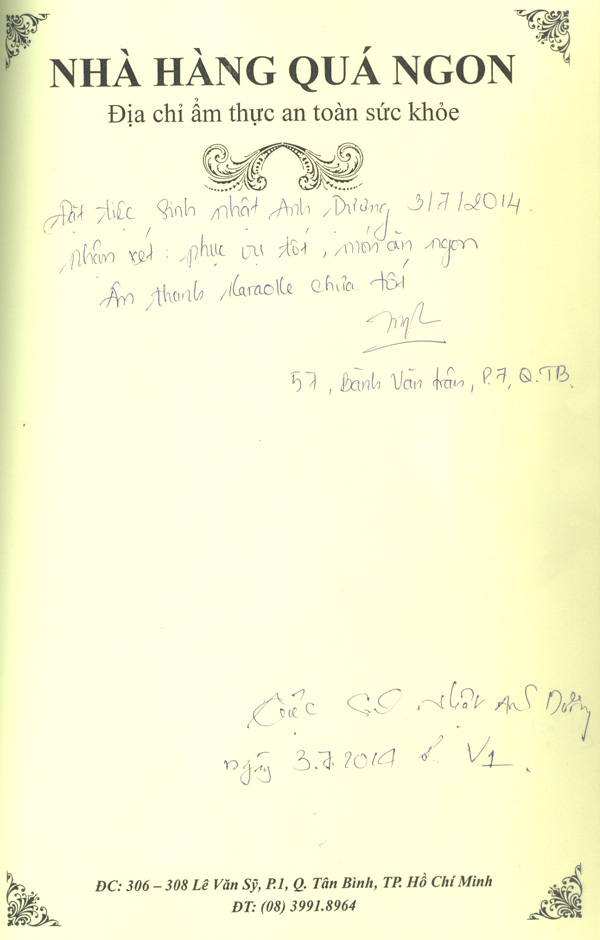 NHÀ HÀNG QUÁ NGON
Địa chỉ ẩm thực an toàn sức khỏe
Đặt tiệc sinh nhật Anh Dương 3/7/2014.
Nhận xét: phục vụ tốt, món ăn ngon
Âm thanh Karaoke chưa tốt
57, Bành Văn Trân, P.7, Q.TB.
nhật Anh Dương
ngày 3.7.2014 ở V1.
ĐC: 306 – 308 Lê Văn Sỹ, P.1, Q. Tân Bình, TP. Hồ Chí Minh
ĐT: (08) 3991.8964